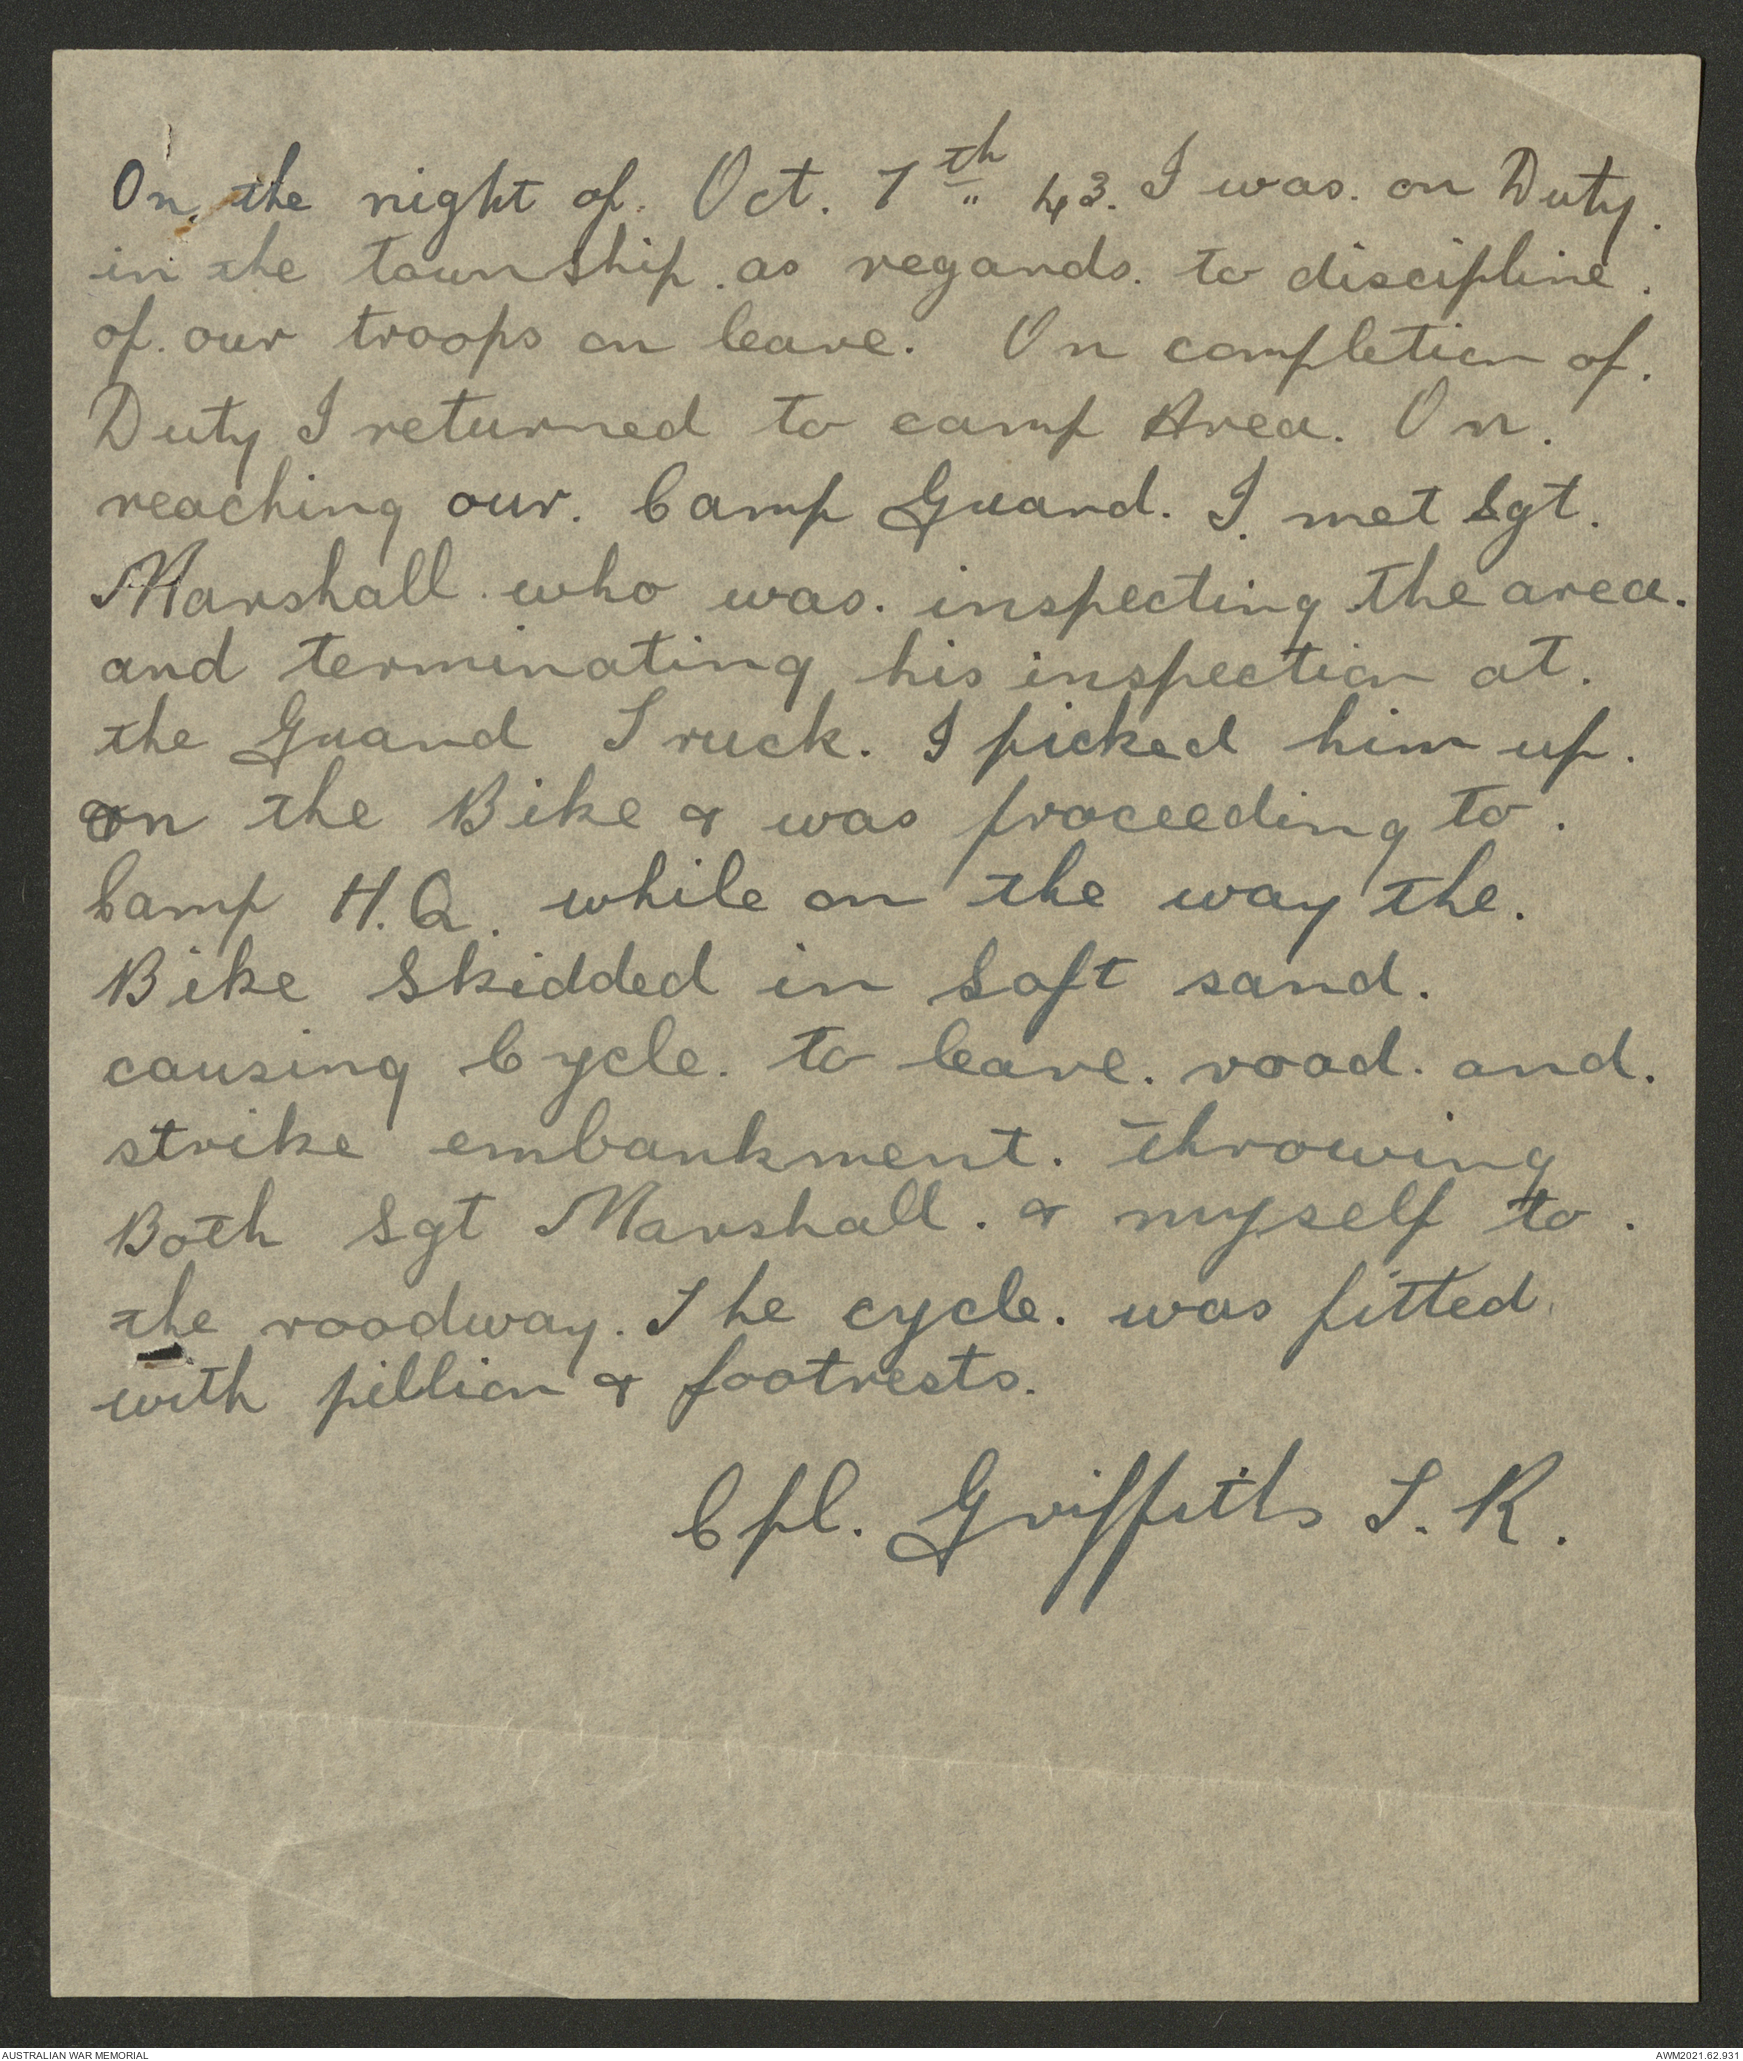 On the night of. Oct. 7th 43. I was. on Duty.
in the township. as regards. to discipline.
of. our troops on leave. On completion of.
Duty I returned to camp Area. On.
reaching our. Camp Guard. I. met Sgt.
Marshall. who was. inspecting the area.
and terminating his inspection at.
the Guard Truck. I picked him up.
on the Bike & was proceeding to.
Camp H.Q. while on the way the.
Bike Skidded in Soft sand.
causing Cycle. to leave. road. and.
strike embankment. throwing
Both Sgt Marshall. & myself to.
the roadway. The cycle. was fitted
with pillion & footrests.
Cpl. Griffiths T. R.
AUSTRALIAN WAR MEMORIAL
AWM2021.62.931